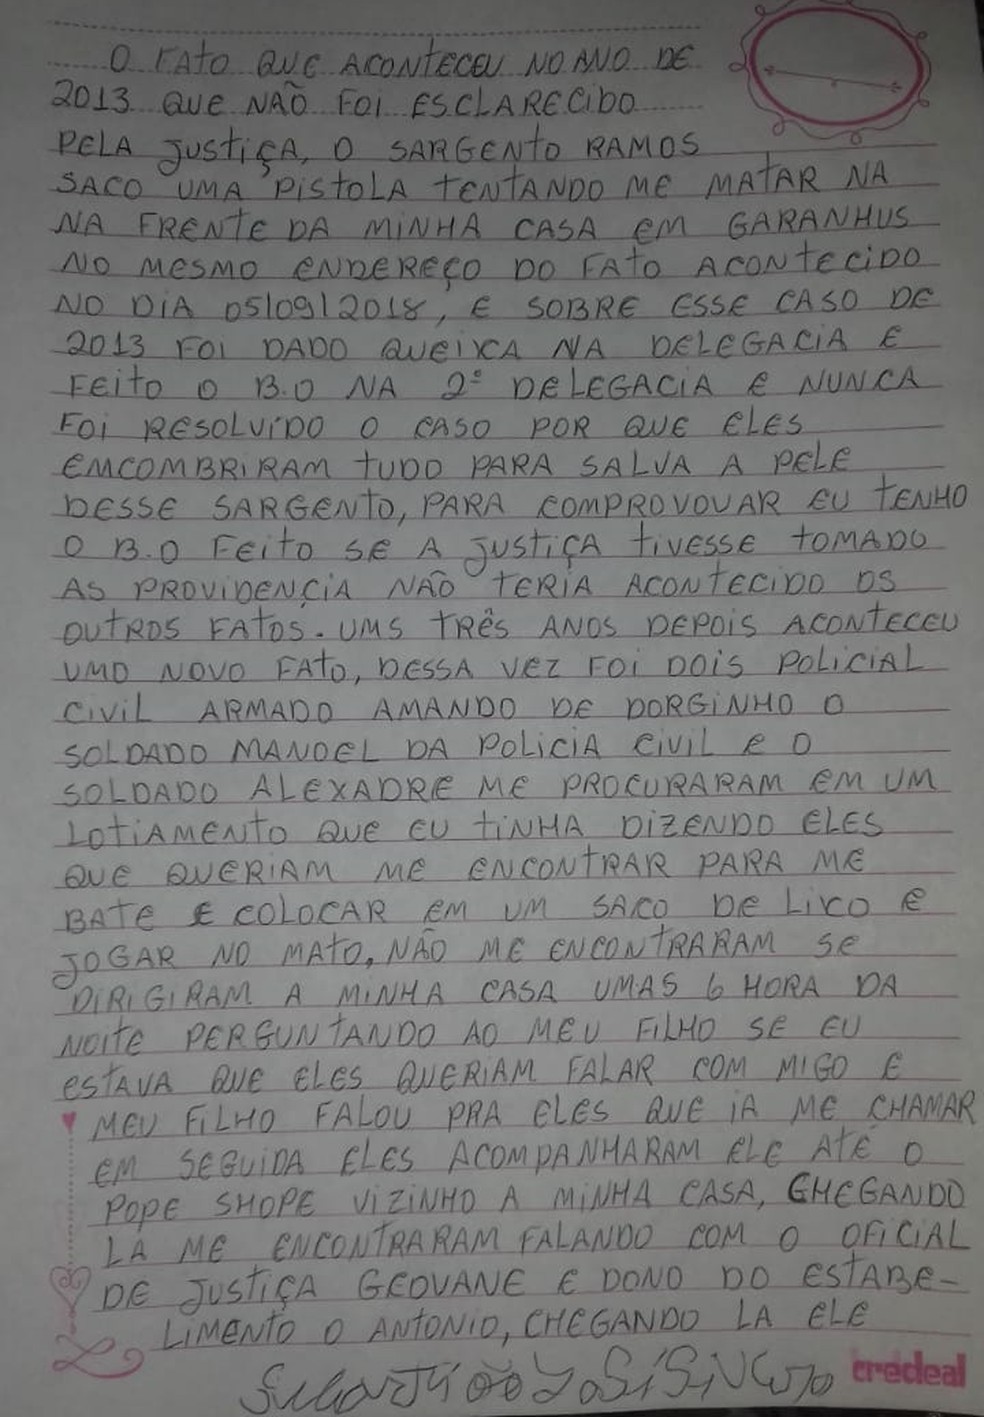 O FATO QUE ACONTECEU NO ANO DE
2013 QUE NÃO FOI ESCLARECIDO
PELA JUSTIÇA, O SARGENTO RAMOS
SACO UMA PISTOLA TENTANDO ME MATAR NA
NA FRENTE DA MINHA CASA EM GARANHUS
NO MESMO ENDEREÇO DO FATO ACONTECIDO
NO DIA 05/09/2018, E SOBRE ESSE CASO DE
2013 FOI DADO QUEIXA NA DELEGACIA E
FEITO O B.O NA 2º DELEGACIA E NUNCA
FOI RESOLVIDO O CASO POR QUE ELES
EMCOMBRIRAM TUDO PARA SALVA A PELE
DESSE SARGENTO, PARA COMPROVOUAR EU TENHO
O B.O FEITO SE A JUSTIÇA TIVESSE TOMADO
AS PROVIDENÇIA NÃO TERIA ACONTECIDO OS
OUTROS FATOS. UMS TRÊS ANOS DEPOIS ACONTECEU
UMO NOVO FATO, DESSA VEZ FOI DOIS POLICIAL
CIVIL ARMADO AMANDO DE DORGINHO O
SOLDADO MANOEL DA POLICIA CIVIL E O
SOLDADO ALEXADRE ME PROCURARAM EM UM
LOTIAMENTO QUE EU TINHA DIZENDO ELES
QUE QUERIAM ME ENCONTRAR PARA ME
BATE E COLOCAR EM UM SACO DE LIXO E
JOGAR NO MATO, NÃO ME ENCONTRARAM SE
DIRIGIRAM A MINHA CASA UMAS 6 HORA DA
NOITE PERGUNTANDO AO MEU FILHO SE EU
ESTAVA QUE ELES QUERIAM FALAR COM MIGO E
MEU FILHO FALOU PRA ELES QUE IA ME CHAMAR
EM SEGUIDA ELES ACOMPANHARAM ELE ATÉ O
POPE SHOPE VIZINHO A MINHA CASA, CHEGANDO
LA ME ENCONTRARAM FALANDO COM O OFICIAL
DE JUSTIÇA GEOVANE E DONO DO ESTABE-
LIMENTO O ANTONIO, CHEGANDO LA ELE
credeal